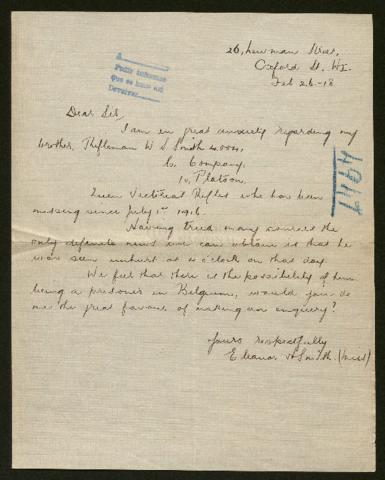 26, Newman Street,
Oxford St. W1.
Feb 26-18
A
Pedir informes
que se haga así
Devolver
Dear Sir,
I am in great anxiety regarding my
brother, Rifleman W S Smith 4004,
C. Company,
Platoon,
Queen Victorias Rifles who has been
missing since July 1st 1916.
Having tried many sources the
only definate news we can obtain is that he
was seen unhurt at o'clock on that day.
We feel that there is the possibility of him
being a prisoner in Belgium, would you do
me the great favour of making an enquiry?
Yours respectfully
Eleanor Smith (Miss)